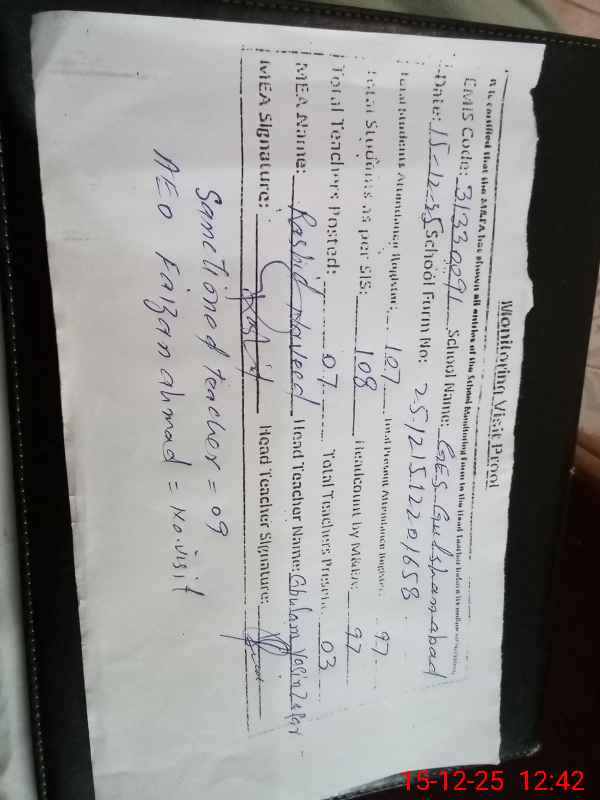 Monitoring Visit Proof
It is certified that the M&EA has shown all entries of the School Monitoring Form to the Head Teacher before
EMIS Code: 31330091 School Name: GES Gulshanabad
Date: 15-12-25 School Form No: 251215122201658
Total Students Attendance Register: 107 Total Present Attendance Register: 97
Total Students as per SIS: 108 Headcount by M&EA: 97
Total Teachers Posted: 07 Total Teachers Present: 03
MEA Name: Rashid Naveed Head Teacher Name: Ghulam Yasin Zafar
MEA Signature: Head Teacher Signature:
Sanctioned teacher = 09
AEO Faizan ahmad = No. visit
15-12-25 12:42